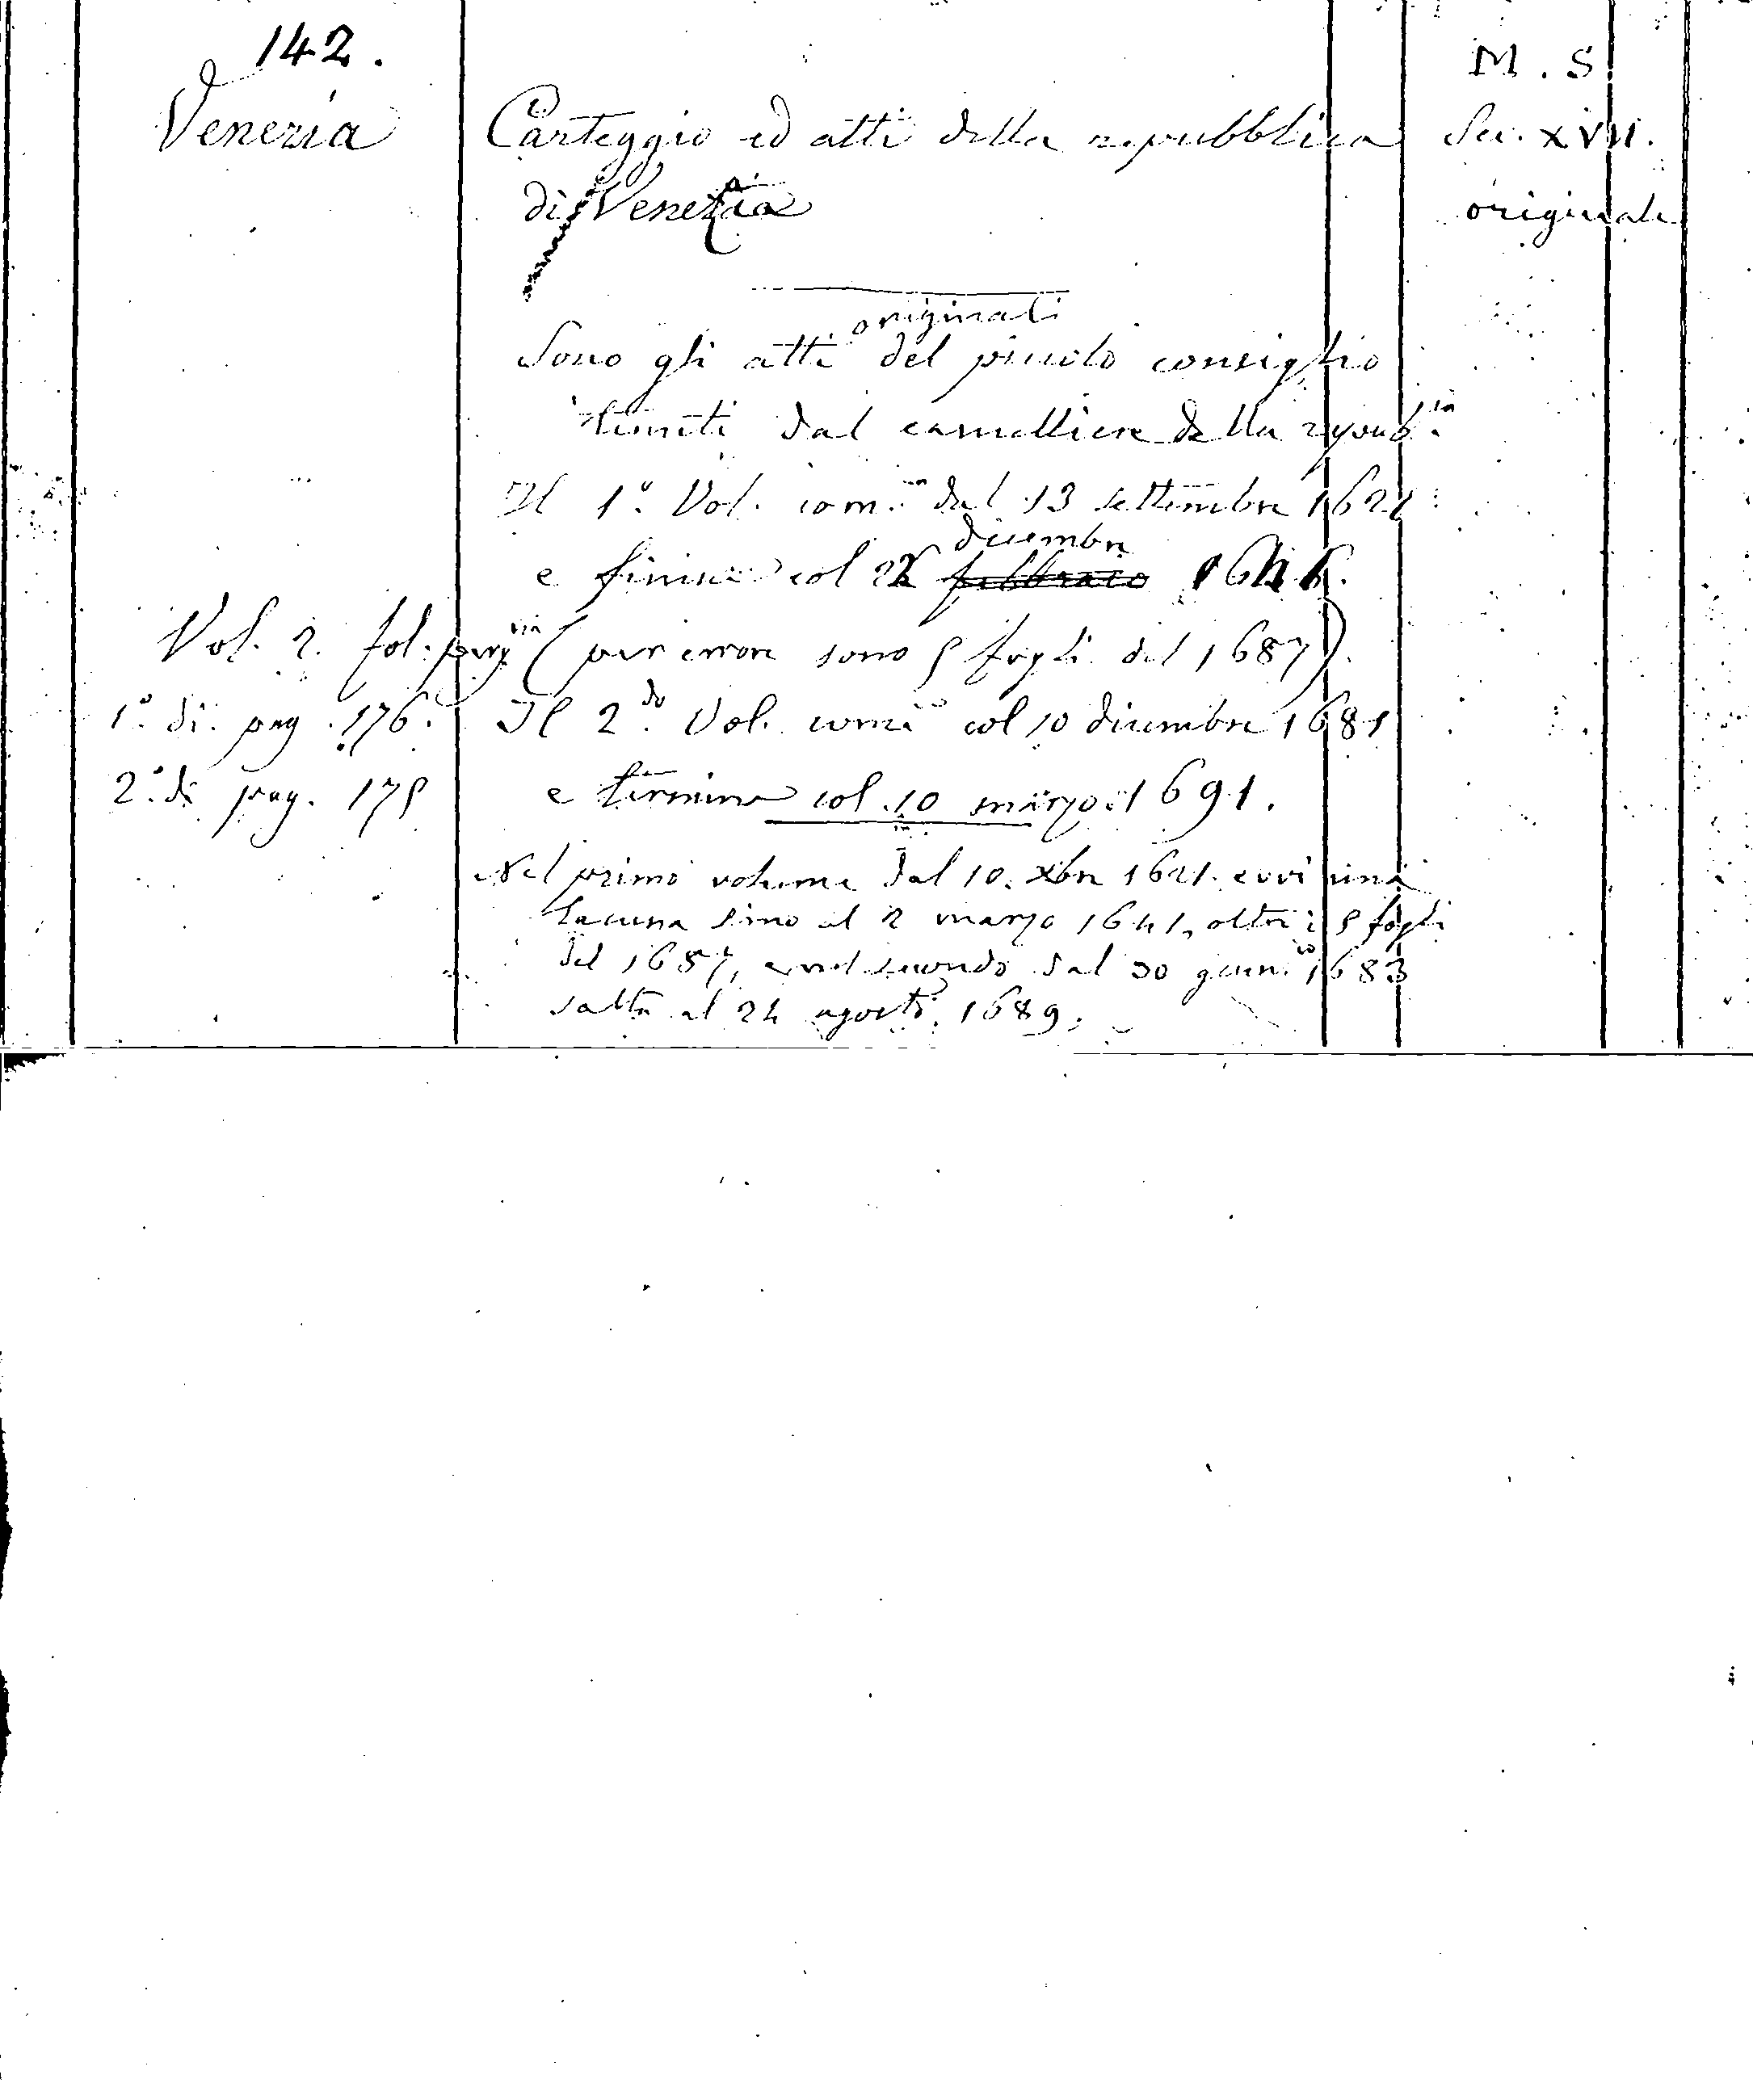 142.
Venezia
Carteggio ed atti della repubblica
di Venezia
M. S.
Sec. XVII.
originale
originali
Sono gli atti del piccolo consiglio
tenuti dal cancelliere della repub.ca
Il 1º. Vol. com. dal 13 settembre 1621
dicembre
e finisce col febbraio
Vol. 2. fol. perg
(per errore sono 5 fogli del 1687).
1º. di. pag. 176.
Il 2.do Vol. comi col 10 dicembre 1681
2º. di pag. 175
e termina col 10 marzo 1691.
Nel primo volume dal 10. Xbre 1621. evvi una
lacuna sino al 2 marzo 1641, oltre i 5 fogli
del 1687, e nel secondo dal 30 1683
salta al 24 agosto 1689.